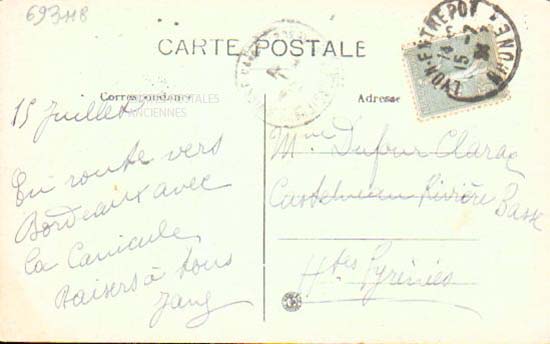 693118
CARTE POSTALE
Correspondance
Adresse
CARTES POSTALES
ANCIENNES
LYON ENTREPOT
RHONE
14
15 - 7
15 Juillet
En route vers
Bordeaux avec
la Canicule
Baisers à tous
Mme Dufour Clarac
Castelnau Rivière Basse
Htes Pyrénées